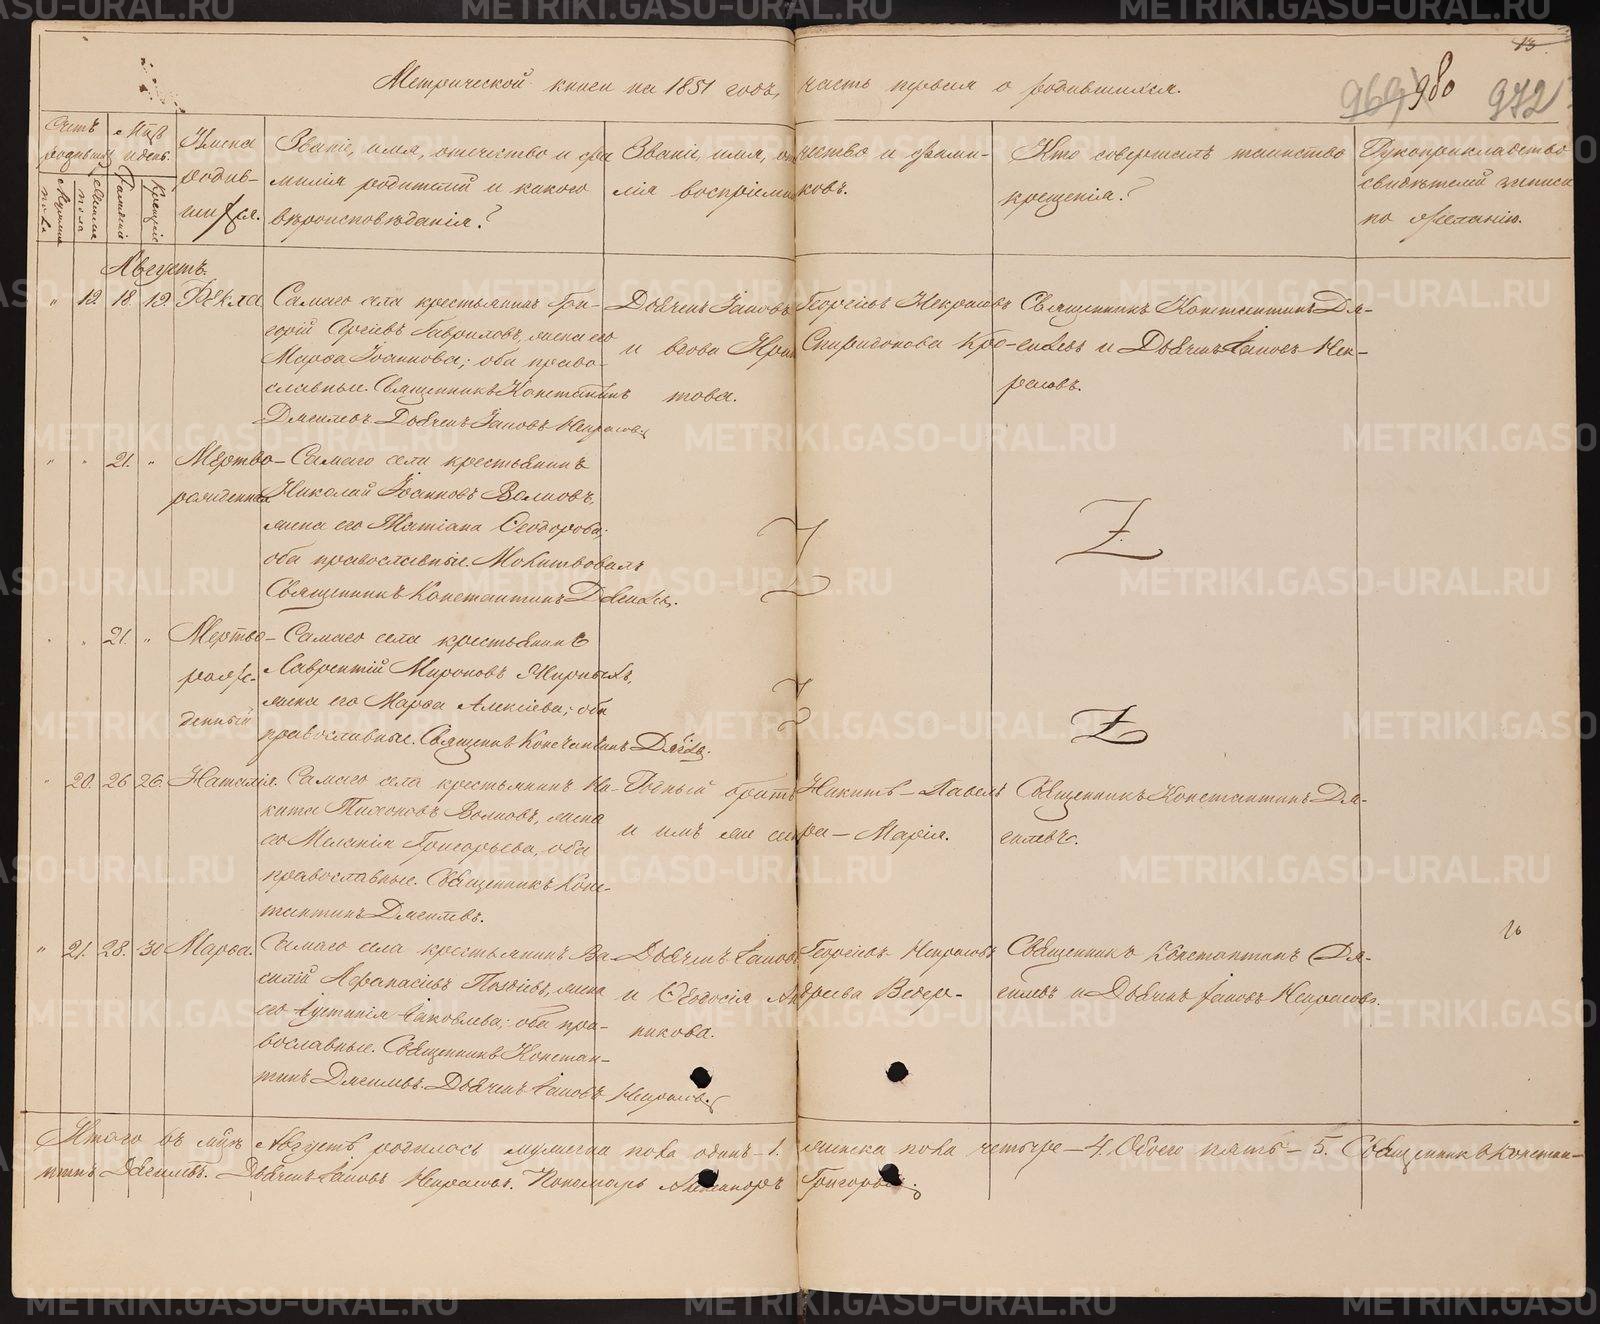 13.
969 980 972
Метрической книги на 1851 годъ, часть первая о родившихся.
Счетъ родившихся
Мужеска пола
Женска пола
Мѣсяцъ и день.
Рожденія
Крещенія
Имена родившихся.
Званіе, имя, отечество и фамилія родителей и какого вѣроисповѣданія?
Званіе, имя, отчество и фамилія воспріемниковъ.
Кто совершалъ таинство крещенія?
Рукоприкладство свидѣтелей записи по желанію.
Августъ.
" 19. 18. 19. Ѳекла
Самаго села крестьянинъ Гри-
горій Сергіевъ Гавриловъ, жена его
Марѳа Іоаннова; оба право-
славные. Священникъ Константинъ
Дягилевъ. Дьячекъ Іаковъ Некрасовъ.
Дьячекъ Іаковъ Георгіевъ Некрасовъ
и вдова Спиридонова Кро-
това.
Священникъ Константинъ Дя-
гилевъ и Дьячекъ Іаковъ Нек-
расовъ.
" " 21. " Мертво-
рожденная
Самаго села крестьянинъ
Николай Іоанновъ Волковъ,
жена его Татіана Ѳеодорова;
оба православные. Молитвовалъ
Священникъ Константинъ Дягилевъ.
" " 21. " Мертво-
рож-
денный
Самаго села крестьянинъ
Лаврентій Мироновъ
жена его Марѳа Алексіева; оба
православные. Священникъ Константинъ Дягилевъ.
" 20. 26 26. Наталія.
Самаго села крестьянинъ Ни-
кита Тихоновъ Волковъ, жена
его Меланія Григорьева, оба
православные. Священникъ Конс-
тантинъ Дягилевъ.
Родный братъ Никитѣ - Павелъ
и имъ же сестра - Марія.
Священникъ Константинъ Дя-
гилевъ.
" 21. 28. 30 Марѳа.
Самаго села крестьянинъ Ва-
силій Аѳанасіевъ жена
его Іустинія Іаковлева; оба пра-
вославные. Священникъ Констан-
тинъ Дягилевъ. Дьячекъ Іаковъ Некрасовъ.
Дьячекъ Іаковъ Георгіевъ Некрасовъ
и Ѳеодосія Андреева Ведер-
никова.
Священникъ Константинъ Дя-
гилевъ и Дьячекъ Іаковъ Некрасовъ.
Итого въ м-цѣ Августѣ родилось мужеска пола одинъ - 1. женска пола четыре - 4. Обоего пять - 5. Священникъ Констан-
тинъ Дягилевъ. Дьячекъ Іаковъ Некрасовъ. Пономарь Александръ Григорьевъ.
METRIKI.GASO-URAL.RU